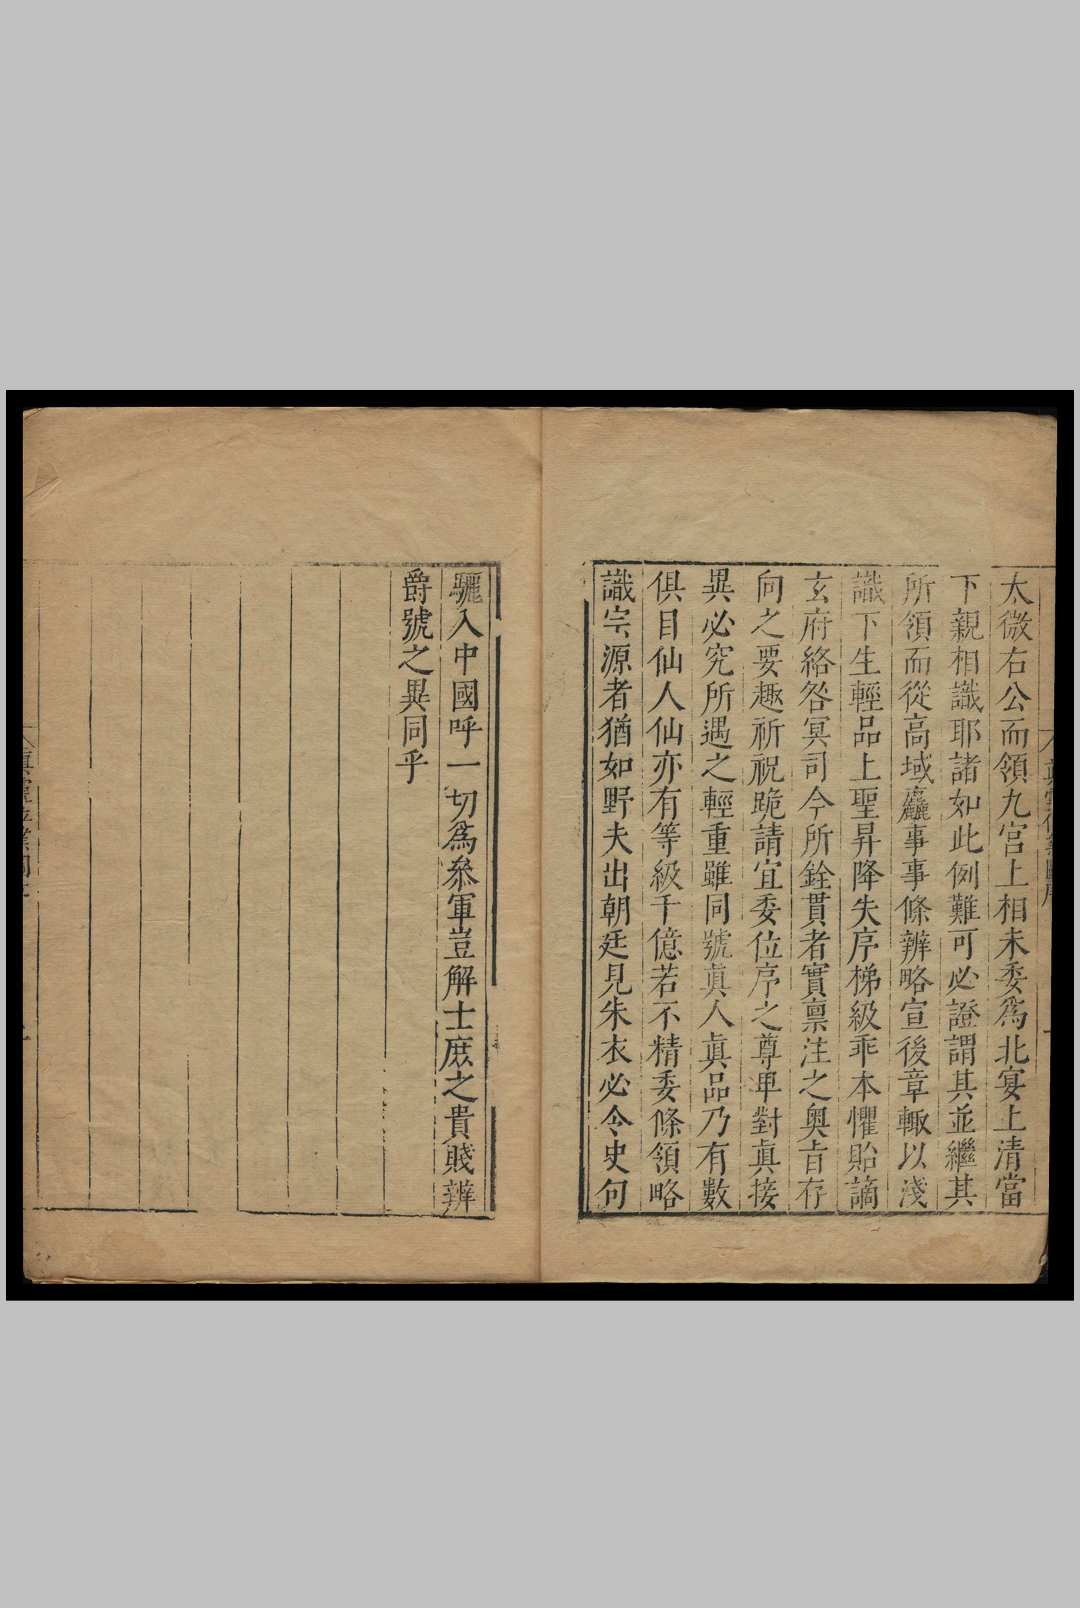 太微右公而領九宮上相未委爲北宴上清當
下親相識耶諸如此例難可必證謂其並繼其
所領而從高域麤事事條辨略宣後章輒以淺
識下生輕品上聖昇降失序梯級乖本懼貽謫
玄府絡咎冥司今所銓貫者實稟注之奥旨存
向之要趣祈祝跪請宜委位序之尊卑對眞接
異必究所遇之輕重雖同號眞人眞品乃有數
俱目仙人仙亦有等級千億若不精委條領略
識宗源者猶如野夫出朝廷見朱衣必令史句
驪入中國呼一切爲叅軍豈解士庶之貴賤辨
爵號之異同乎